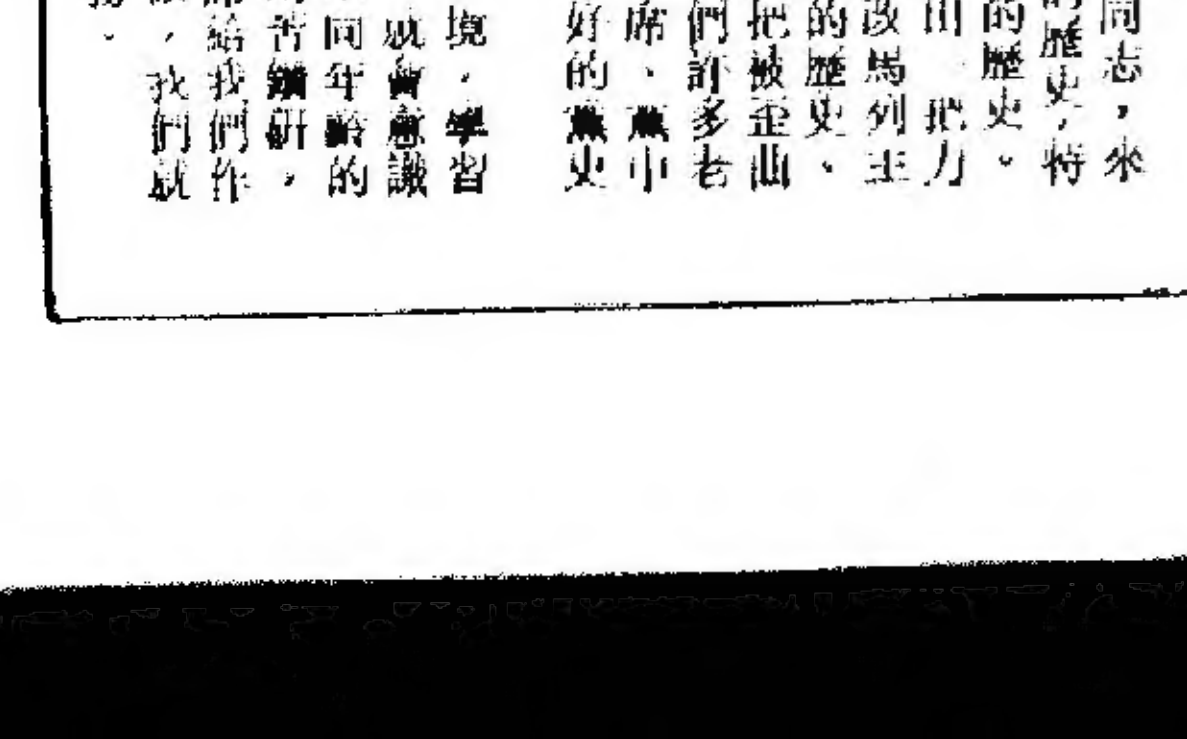 同志，來
的歷史，特
的歷史。
出　把力
改馬列主
的歷史、
把被歪曲
們許多老
席、黨中
好的黨史
境，學習
就會意識
同年齡的
苦鑽研，
席給我們作
，我們就
。